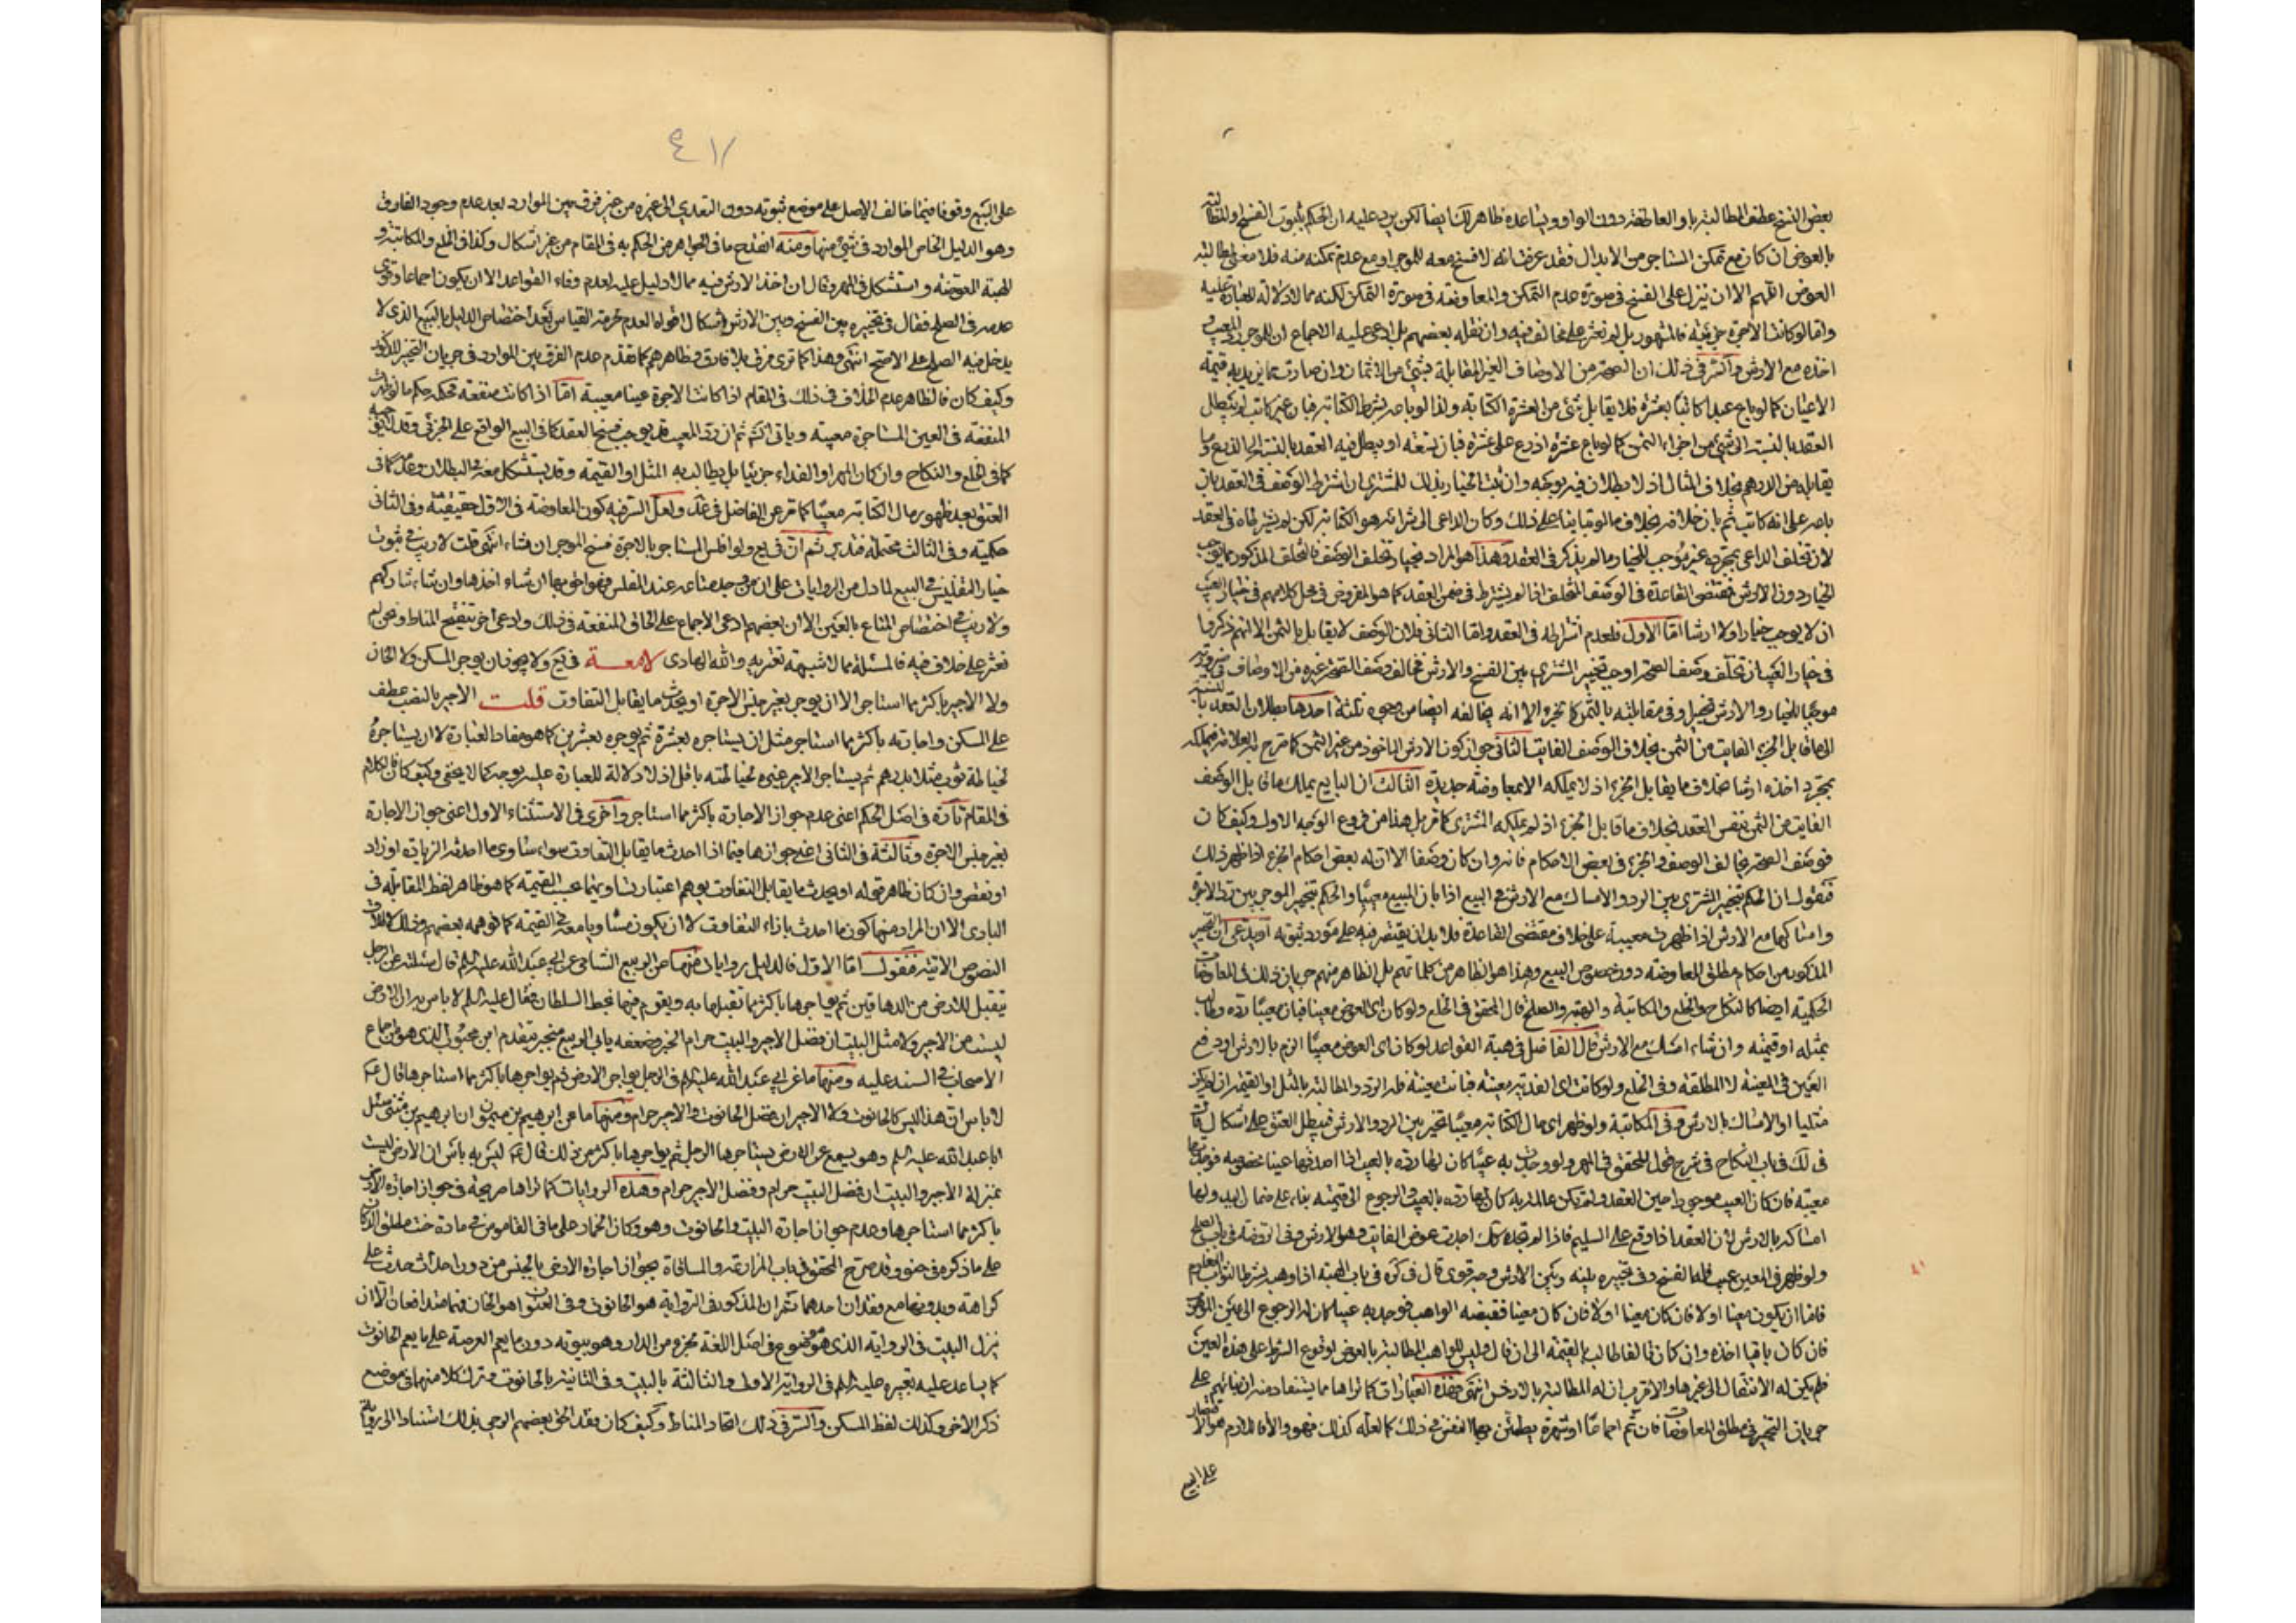 بعض النسخ عطف المطالبة باو العاطفة دون الواو ويساعده ظاهر لك ايضا لكن يرد عليه ان الحكم بثبوت الفسخ او المطالبة
بالعوض ان كان مع تمكن المستاجر من الابدال فقد عرفت انه لا فسخ معه للموجر او مع عدم تمكنه منه فلا معنى لمطالبة
العوض اللهم الا ان ينزل على الفسخ في صورة عدم التمكن والمعاوضة في صورة التمكن لكنه مما لا دلالة للعبارة عليه
واما لو كانت الاجرة جزئية فالمشهور بل لم نعثر على مخالف فيه وان نقله بعضهم بل ادعى عليه الاجماع ان للموجر رد المعيب و
اخذه مع الارش والسر في ذلك ان الصحة من الاوصاف الغير المقابلة بشيء من الاثمان وان صارت مما يزيد به قيمة
الاعيان كما لو باع عبدا كاتبا بعشرة فلا يقابل شيء من العشرة الكتابة ولذا لو باصر بشرط الكتابة فبان غير كاتب لم يبطل
العقد بالنسبة الى شيء من اجزاء الثمن كما لو باع عشرة اذرع على عشرة فبان تسعة او يبطل فيه العقد بالنسبة الى الذرع وما
يقابله من الدرهم بخلاف المثال اذ لا بطلان فيه بوجه وان ثبت الخيار بذلك للمشتري ان اشترط الوصف في العقد بان
باصر على انه كاتب ثم بان خلافه بخلاف ما لو تبايعا على ذلك وكان الداعي الى شرائه هو الكتابة لكن لم يشترطاه في العقد
لان تخلف الداعي بمجرده غير موجب للخيار وما لم يذكر في العقد وهذا هو المراد بخيار تخلف الوصف فالتخلف المذكور مما يوجب
الخيار دون الارش فمقتضى القاعدة في الوصف المتخلف اذا لم يشترط في ضمن العقد كما هو المفروض في محل كلامهم في خيار العيب
ان لا يوجب خيارا ولا ارشا اما الاول فلعدم اشتراطه في العقد واما الثاني فلان الوصف لا يقابل بالثمن الا انهم ذكروا
في خيار العيب ان تخلف وصف الصحة اوجب تخيير المشتري بين الفسخ والارش فخالف وصف الصحة غيره من الاوصاف في صيرورته
موجبا للخيار والارش فيه وفي مقابلته بالثمن كالجزء الا انه يخالفه ايضا من وجوه ثلثة احدها بطلان العقد بالنسبة
الى ما قابل الجزء الفايت من الثمن بخلاف الوصف الفايت الثاني جواز كون الارش الماخوذ من غير الثمن كما صرح به العلامة فيملكه
بمجرد اخذه ارشا بخلاف ما يقابل الجزء اذ لا يملكه الا بمعاوضة جديدة الثالث ان البايع يملك ما قابل الوصف
الفايت من الثمن بنفس العقد بخلاف ما قابل الجزء اذ لم يملكه المشتري كما مر بل هذا من فروع الوجه الاول وكيف كان
فوصف الصحة يخالف الوصف والجزء في بعض الاحكام فانه وان كان وصفا الا ان له بعض احكام الجزء اذا ظهر ذلك
فنقول ان الحكم بتخيير المشتري بين الرد والامساك مع الارش في البيع اذا بان المبيع معيبا والحكم بتخيير الموجر بين رد الاجرة
وامساكها مع الارش اذا ظهرت معيبة على خلاف مقتضى القاعدة فلا بد ان يقتصر فيه على مورد ثبوته او يدعى ان التخيير
المذكور من احكام مطلق المعاوضة دون خصوص البيع وهذا هو الظاهر من كلماتهم بل الظاهر منهم جريان ذلك في المعاوضات
الحكمية ايضا كالنكاح والخلع والمكاتبة والهبة والصلح قال المحقق في الخلع ولو كان اي العوض معينا فبان معيبا رده وطالب
بمثله او قيمته وان شاء امسك مع الارش قال الفاضل في هبة القواعد لو كان اي العوض معيبا الزم بالارش او دفع
العين في المعينة لا المطلقة وفي الخلع ولو كانت اي الفدية معينة فبانت معيبة فله الرد والمطالبة بالمثل او القيمة ان لم يكن
مثليا او الامساك بالارش وفي المكاتبة ولو ظهر اي مال الكتابة معيبا تخير بين الرد والارش فيبطل العتق على اشكال
في لك في باب النكاح في شرح قول المحقق في المهر ولو وجدت به عيبا كان لها رده بالعيب اذا اصدقها عينا مخصوصة فوجدتها
معيبة فان كان العيب موجودا حين العقد ولم تكن عالمة به كان لها رده بالعيب والرجوع الى قيمته بناء على ضمان اليد ولها
امساكه بالارش لان العقد انما وقع على السليم فاذا لم تجده كك اخذت عوض الفايت وهو الارش وفي الروضة في باب الصلح
ولو ظهر في المعين عيب فله الفسخ وفي تخييره بينه وبين الارش وجه قوي قال في كرة في باب الهبة اذا وهب بشرط الثواب المعلوم
فاما ان يكون معينا او لا فان كان معينا فقبضه الواهب فوجد به عيبا كان له الرجوع الى عين الموهوب
فان كان باقيا اخذه وان كان تالفا طالب بالقيمة الى ان قال وليس للواهب المطالبة بالعوض لوقوع الشرط على هذه العين
فلم يكن له الانتقال الى غيرها والاقرب ان له المطالبة بالارش انتهى فهذه العبارات كما تراها مما يستفاد منه ان بنائهم على
جريان التخيير في مطلق المعاوضات فان تم اجماعا او شهرة يطمئن بها النفس في ذلك كما لعله كذلك فهو والا فاللازم هو الاقتصار
على البيع
٤١٧
على البيع وقوفا فيما خالف الاصل على موضع ثبوته دون التعدي الى غيره من غير فرق بين الموارد بعد عدم وجود الفارق
وهو الدليل الخاص الوارد في شيء منها ومنه انقدح ما في الجواهر من الحكم به في المقام من غير اشكال وكذا في الخلع والمكاتبة و
الهبة المعوضة واستشكل في المهر وقال ان اخذ الارش فيه مما لا دليل عليه لعدم وفاء القواعد الا ان يكون اجماعا وقوى
عدمه في الصلح فقال في تخييره بين الفسخ وبين الارش اشكال اقواه العدم لحرمة القياس بعد اختصاص الدليل بالبيع الذي لا
يدخل فيه الصلح على الاصح انتهى وهذا كما ترى فرق بلا فارق وظاهرهم كما تقدم عدم الفرق بين الموارد في جريان التخيير المذكور
وكيف كان فالظاهر عدم الخلاف في ذلك في المقام اذا كانت الاجرة عينا معيبة اما اذا كانت منفعة فحكمه حكم ما لو ظهرت
المنفعة في العين المستاجرة معيبة وياتي انشم ثم ان رد المعيب قد يوجب فسخ العقد كما في البيع الواقع على الجزئي وقد لا يوجبه
كما في الخلع والنكاح وان كان المهر او الفداء جزئيا بل يطالب به المثل او القيمة وقد يستشكل معه في البطلان وعدمه كما في
العتق بعد ظهور مال الكتابة معيبا كما مر عن الفاضل في عد ولعل السر فيه كون المعاوضة في الاول حقيقية وفي الثاني
حكمية وفي الثالث محتملة فتدبر ثم ان في يع ولو افلس المستاجر بالاجرة فسخ الموجر ان شاء انتهى قلت لا ريب في ثبوت
خيار التفليس في البيع لما دل من الروايات على ان من وجد متاعه عند المفلس فهو احق بها ان شاء اخذها وان شاء شاركهم
ولا ريب في اختصاص المتاع بالعين الا ان بعضهم ادعى الاجماع على الحاق المنفعة في ذلك وادعى اخر تنقيح المناط ونحن لم
نعثر على خلاف فيه فالمسئلة مما لا شبهة تعتريه والله الهادي لامعة في يع ولا يجوز ان يوجر المسكن ولا الخان
ولا الاجير باكثر مما استاجر الا ان يوجر بغير جنس الاجرة او يحدث ما يقابل التفاوت قلت الاجير بالنصب عطف
على المسكن واجارته باكثر مما استاجر مثل ان يستاجره بعشرة ثم يوجره بعشرين كما هو مفاد العبارة لا ان يستاجره
لخياطة ثوب مثلا بدرهم ثم يستاجر الاجير غيره لخياطته باقل اذ لا دلالة للعبارة عليه بوجه كما لا يخفى وكيف كان فالكلام
في المقام تارة في اصل الحكم اعني عدم جواز الاجارة باكثر مما استاجر واخرى في الاستثناء الاول اعني جواز الاجارة
بغير جنس الاجرة وثالثة في الثاني اعني جوازها فيما اذا احدث ما يقابل التفاوت سواء ساوى ما احدثه الزيادة او زاد
او نقص وان كان ظاهر قوله او يحدث ما يقابل التفاوت يوهم اعتبار تساويهما بحسب القيمة كما هو ظاهر لفظ المقابلة في
البادي الا ان المراد منها كون ما احدث بازاء التفاوت لا ان يكون مساويا معه في القيمة كما توهمه بعضهم وذلك لاطلاق
النصوص الاتية فنقول اما الاول فالدليل روايات منها عن ابي الربيع الشامي عن ابي عبد الله عليه السلم قال سئلته عن الرجل
يتقبل الارض من الدهاقين ثم يواجرها باكثر مما تقبلها به ويقوم فيها بحظ السلطان فقال عليه السلم لا باس به ان الارض
ليست مثل الاجير ولا مثل البيت ان فضل الاجير والبيت حرام الخبر وضعفه بابي الربيع منجبر بتقدم ابن محبوب الذي هو من اجماع
الاصحاب في السند عليه ومنها ما عن ابي عبد الله عليه السلم في الرجل يواجر الارض ثم يواجرها باكثر مما استاجرها قال عم
لا باس ان هذا ليس كالحانوت ولا الاجير ان فضل الحانوت والاجير حرام ومنها ما عن ابرهيم بن ميمون ان ابرهيم بن مثنى سئل
ابا عبد الله عليه السلم وهو يسمع عن الارض يستاجرها الرجل ثم يواجرها باكثر من ذلك قال عم ليس به باس ان الارض ليست
بمنزلة الاجير والبيت ان فضل البيت حرام وفضل الاجير حرام وهذه الروايات كما تراها صريحة في جواز اجارة الارض
باكثر مما استاجرها وعدم جواز اجارة البيت والحانوت وهو دكان الخمار على ما في القاموس في مادة خنت ومطلق الدكان
على ما ذكره في حنو وقد صرح المحقق في باب المزارعة والمساقاة بجواز اجارة الارض بالجنس من دون احداث حدث على
كراهة وبدونها مع فقدان احدهما ثم ان المذكور في الرواية هو الحانوت وفي العنوان هو الخان فهما متدافعان الا ان
ينزل البيت في الرواية الذي هو موضوع في اصل اللغة لجزء من الدار وهو بيوته دون ما يعم العرصة على ما يعم الحانوت
كما يساعد عليه تعبيره عليه السلم في الرواية الاولى والثالثة بالبيت وفي الثانية بالحانوت وترك كلا منهما في موضع
ذكر الاخر وكذلك لفظ المسكن والسر في ذلك اتحاد المناط وكيف كان فقد الحق بعضهم الرحى بذلك استنادا الى رواية